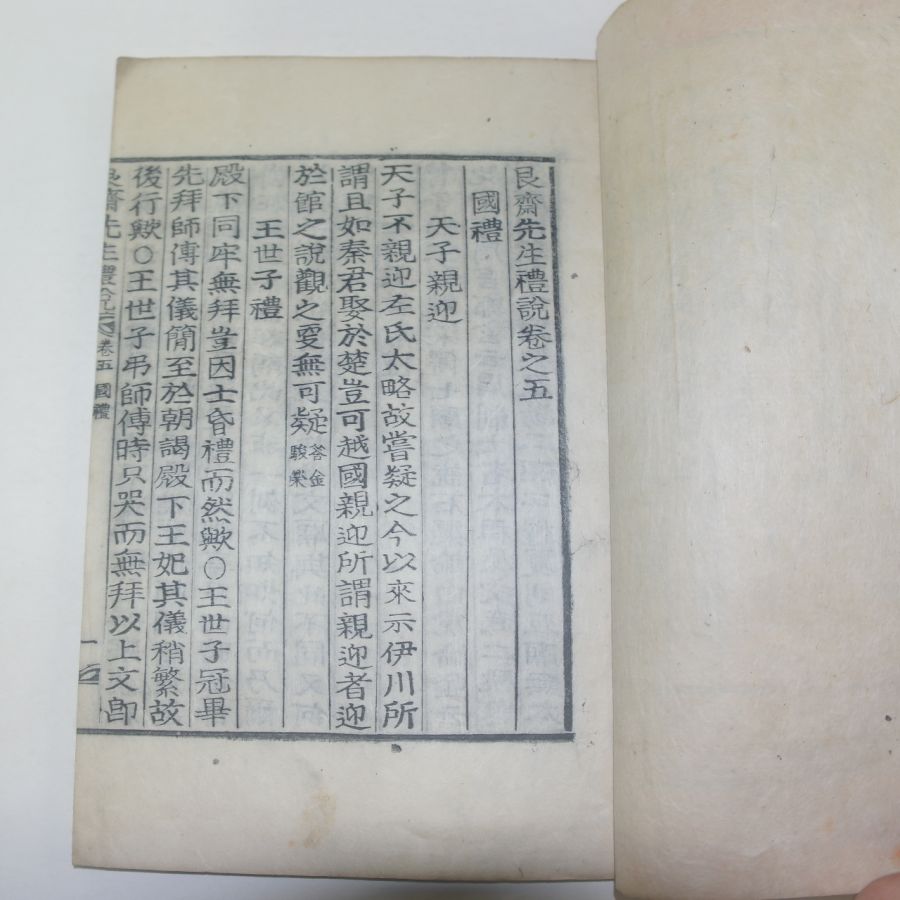 艮齋先生禮說卷之五
國禮
天子親迎
天子不親迎左氏太略故嘗疑之今以來示伊川所
謂且如秦君娶於楚豈可越國親迎所謂親迎者迎
於館之說觀之更無可疑答金駿榮
王世子禮
殿下同牢無拜豈因士昏禮而然歟○王世子冠畢
先拜師傅其儀簡至於朝謁殿下王妃其儀稍繁故
後行歟○王世子弔師傅時只哭而無拜以上文郎
艮齋先生禮說 卷五 國禮 一